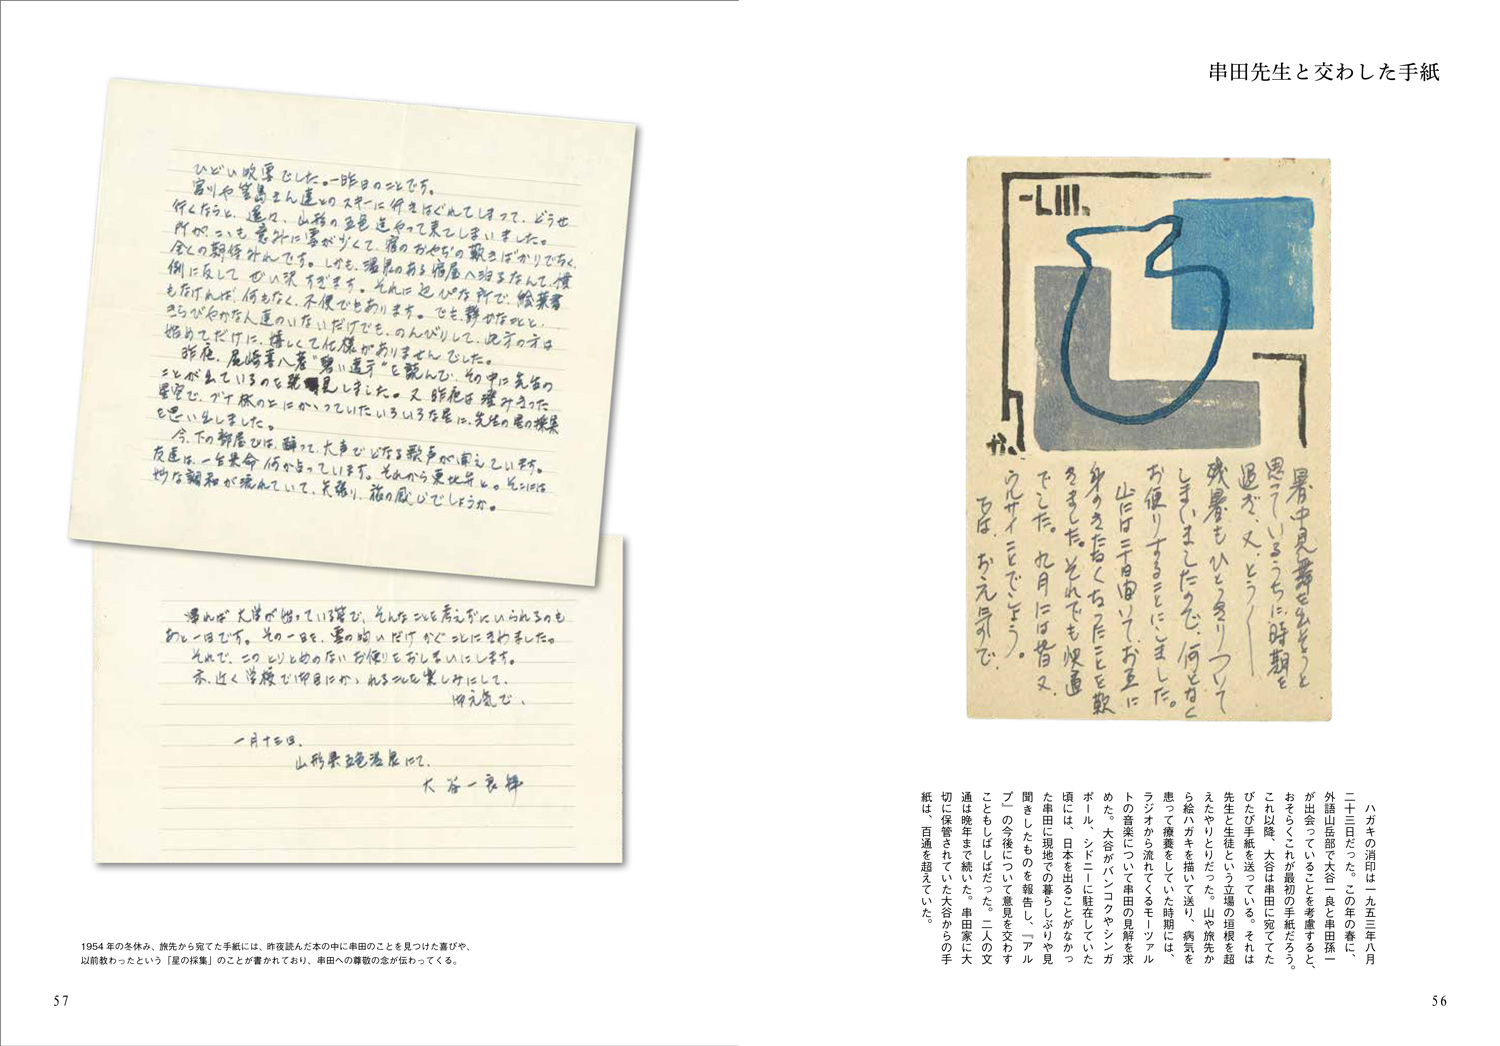 串田先生と交わした手紙
暑中見舞を出そうと
思っているうちに時期を
過ぎ、又、とう〱
残暑もひとっきりついて
しまいましたので、何となく
お便りすることにしました。
山には二十日間いて、お互に
身のきたなくなったことを歎
きました。それでも快適
でした。九月には皆又、
ウルサイことでしょう。
では、お元気で、
ハガキの消印は一九五三年八月
二十三日だった。この年の春に、
外語山岳部で大谷一良と串田孫一
が出会っていることを考慮すると、
おそらくこれが最初の手紙だろう。
これ以降、大谷は串田に宛ててた
びたび手紙を送っている。それは
先生と生徒という立場の垣根を超
えたやりとりだった。山や旅先か
ら絵ハガキを描いて送り、病気を
患って療養をしていた時期には、
ラジオから流れてくるモーツァル
トの音楽について串田の見解を求
めた。大谷がバンコクやシンガ
ポール、シドニーに駐在していた
頃には、日本を出ることがなかっ
た串田に現地での暮らしぶりや見
聞きしたものを報告し、『アル
プ』の今後について意見を交わす
こともしばしばだった。二人の文
通は晩年まで続いた。串田家に大
切に保管されていた大谷からの手
紙は、百通を超えていた。
56
ひどい吹雪でした。一昨日のことです。
宮川や宮島さん達とのスキーに行きはぐれてしまって、どうせ
行くならと、遥々、山形の五色迄やって来てしまいました。
所が、こゝも意外に雪が少くて、宿のおやぢの歎きばかりでなく、
全くの期待外れです。しかも、温泉のある宿屋へ泊るなんて、慣
例に反して ぜい沢すぎます。それに辺ぴな所で、絵葉書
もなければ、何もなく、不便でもあります。でも、静かなことと、
きらびやかな人達のいないだけでも、のんびりして、此方の方は
始めてだけに、嬉しくて仕様がありませんでした。
昨夜、尾崎喜八著"碧い遠方"を読んで、その中に先生の
ことが出ているのを発見しました。又 昨夜は澄みきった
星空で、ブナ林の上にかゝっていたいろいろな星に、先生の星の採集
を思い出しました。
今、下の部屋では、酔って、大声でどなる歌声が聞えています。
友達は、一生懸命何か占っています。それから東北弁と。そこには
妙な調和が流れていて、矢張り、旅の感じでしょうか。
帰れば 大学が始っている筈で、そんなことを考えずにいられるのも
あと一日です。その一日を、雪の匂いだけ かぐことにきめました。
それで、このとりとめのないお便りをおしまいにします。
亦、近く 学校で御目にかゝれることを楽しみにして、
御元気で、
一月十三日、
山形県五色温泉にて、
大谷一良拝
1954 年の冬休み、旅先から宛てた手紙には、昨夜読んだ本の中に串田のことを見つけた喜びや、
以前教わったという「星の採集」のことが書かれており、串田への尊敬の念が伝わってくる。
57